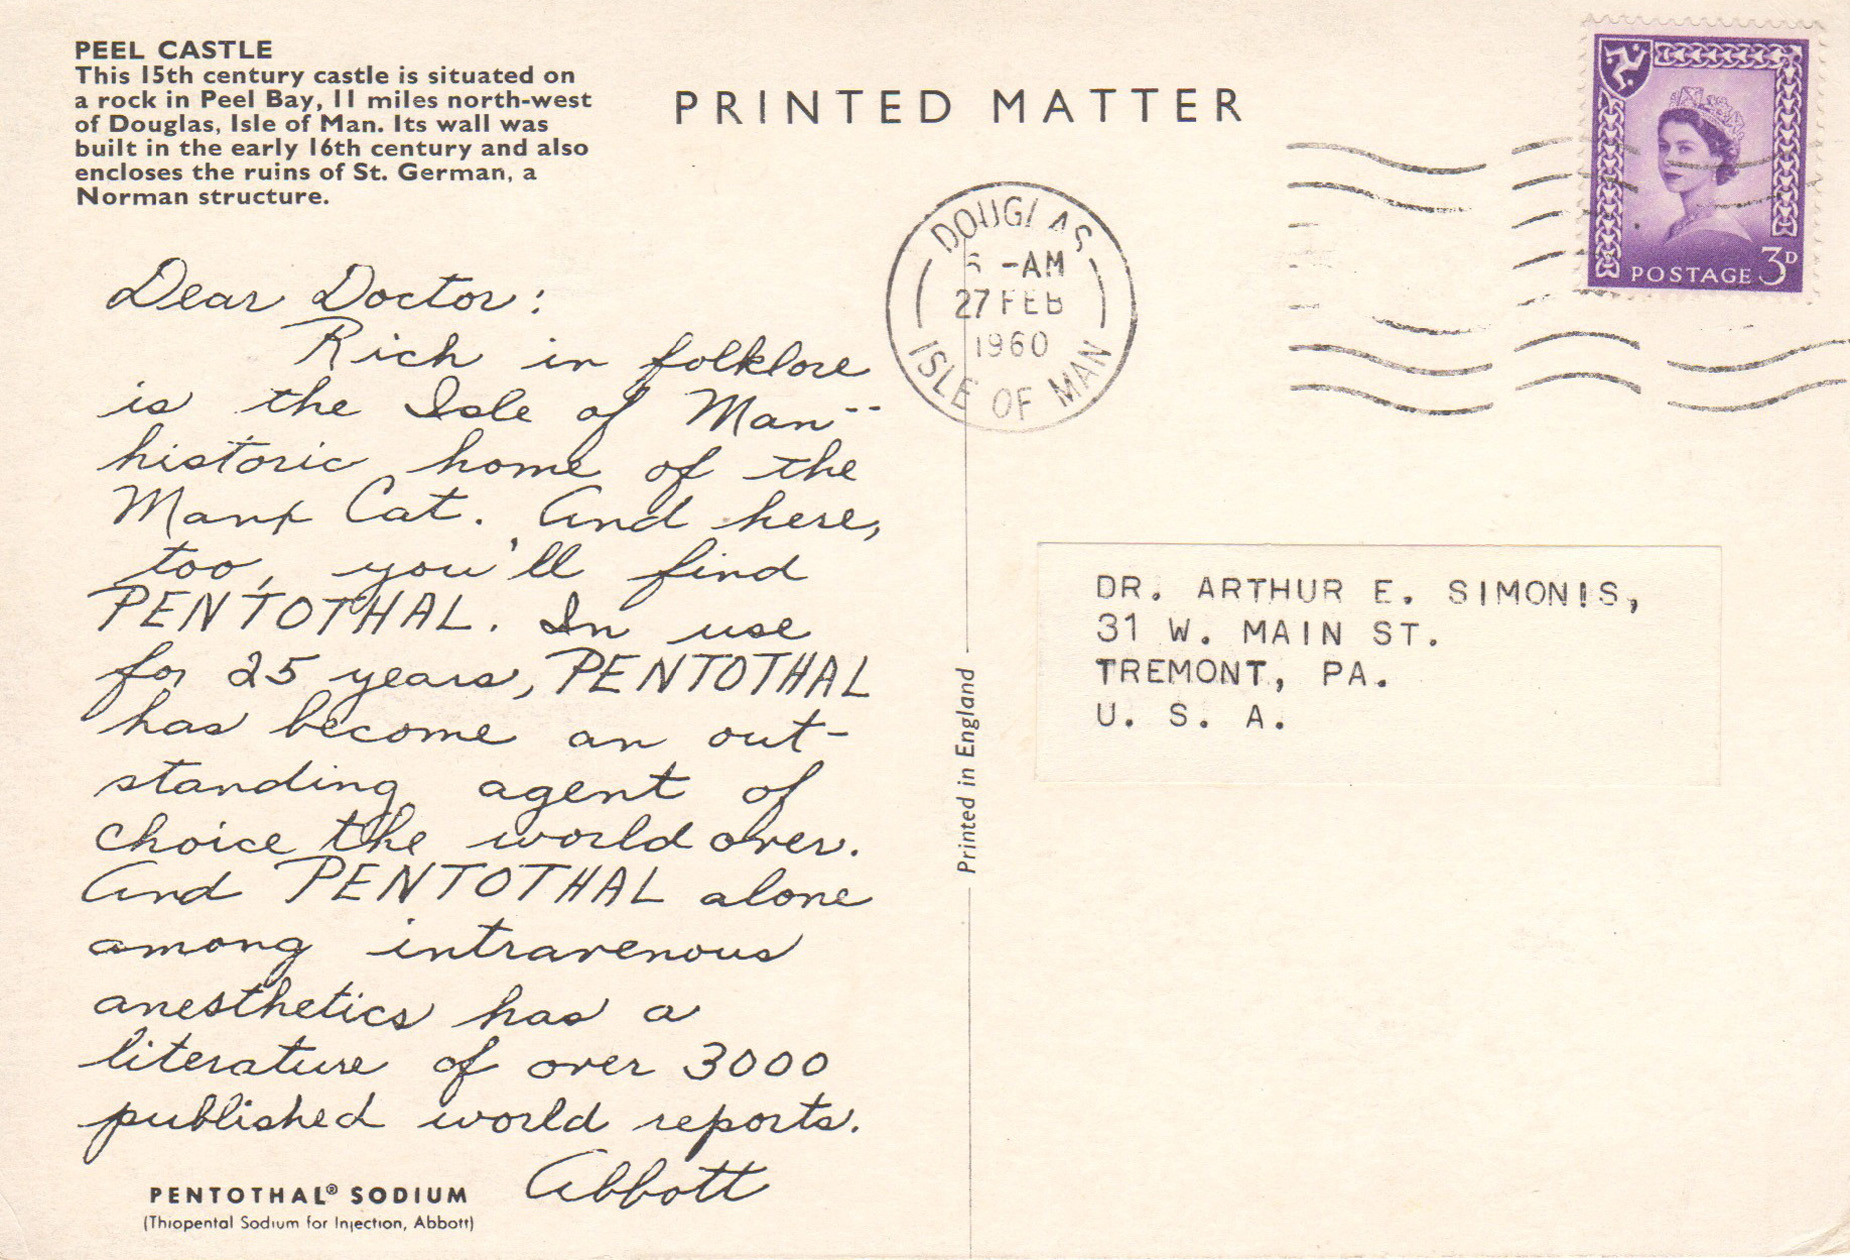 PEEL CASTLE
This 15th century castle is situated on
a rock in Peel Bay, 11 miles north-west
of Douglas, Isle of Man. Its wall was
built in the early 16th century and also
encloses the ruins of St. German, a
Norman structure.
Dear Doctor:
Rich in folklore
is the Isle of Man--
historic home of the
Manx Cat. And here,
too, you'll find
PENTOTHAL. In use
for 25 years, PENTOTHAL
has become an out-
standing agent of
choice the world over.
And PENTOTHAL alone
among intravenous
anesthetics has a
literature of over 3000
published world reports.
Abbott
PENTOTHAL® SODIUM
(Thiopental Sodium for Injection, Abbott)
PRINTED MATTER
DOUGLAS
-AM
27 FEB
1960
ISLE OF MAN
POSTAGE 3D
Printed in England
DR. ARTHUR E. SIMONIS,
31 W. MAIN ST.
TREMONT, PA.
U. S. A.